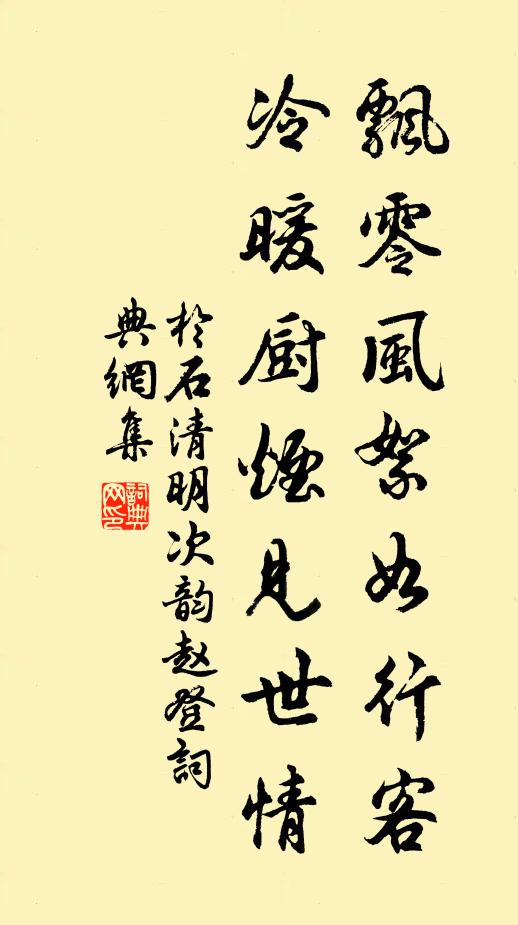 飄零風絮如行客
冷暖厨煙見世情
於石清明次韵赵登詞
典網集
詞典
网印